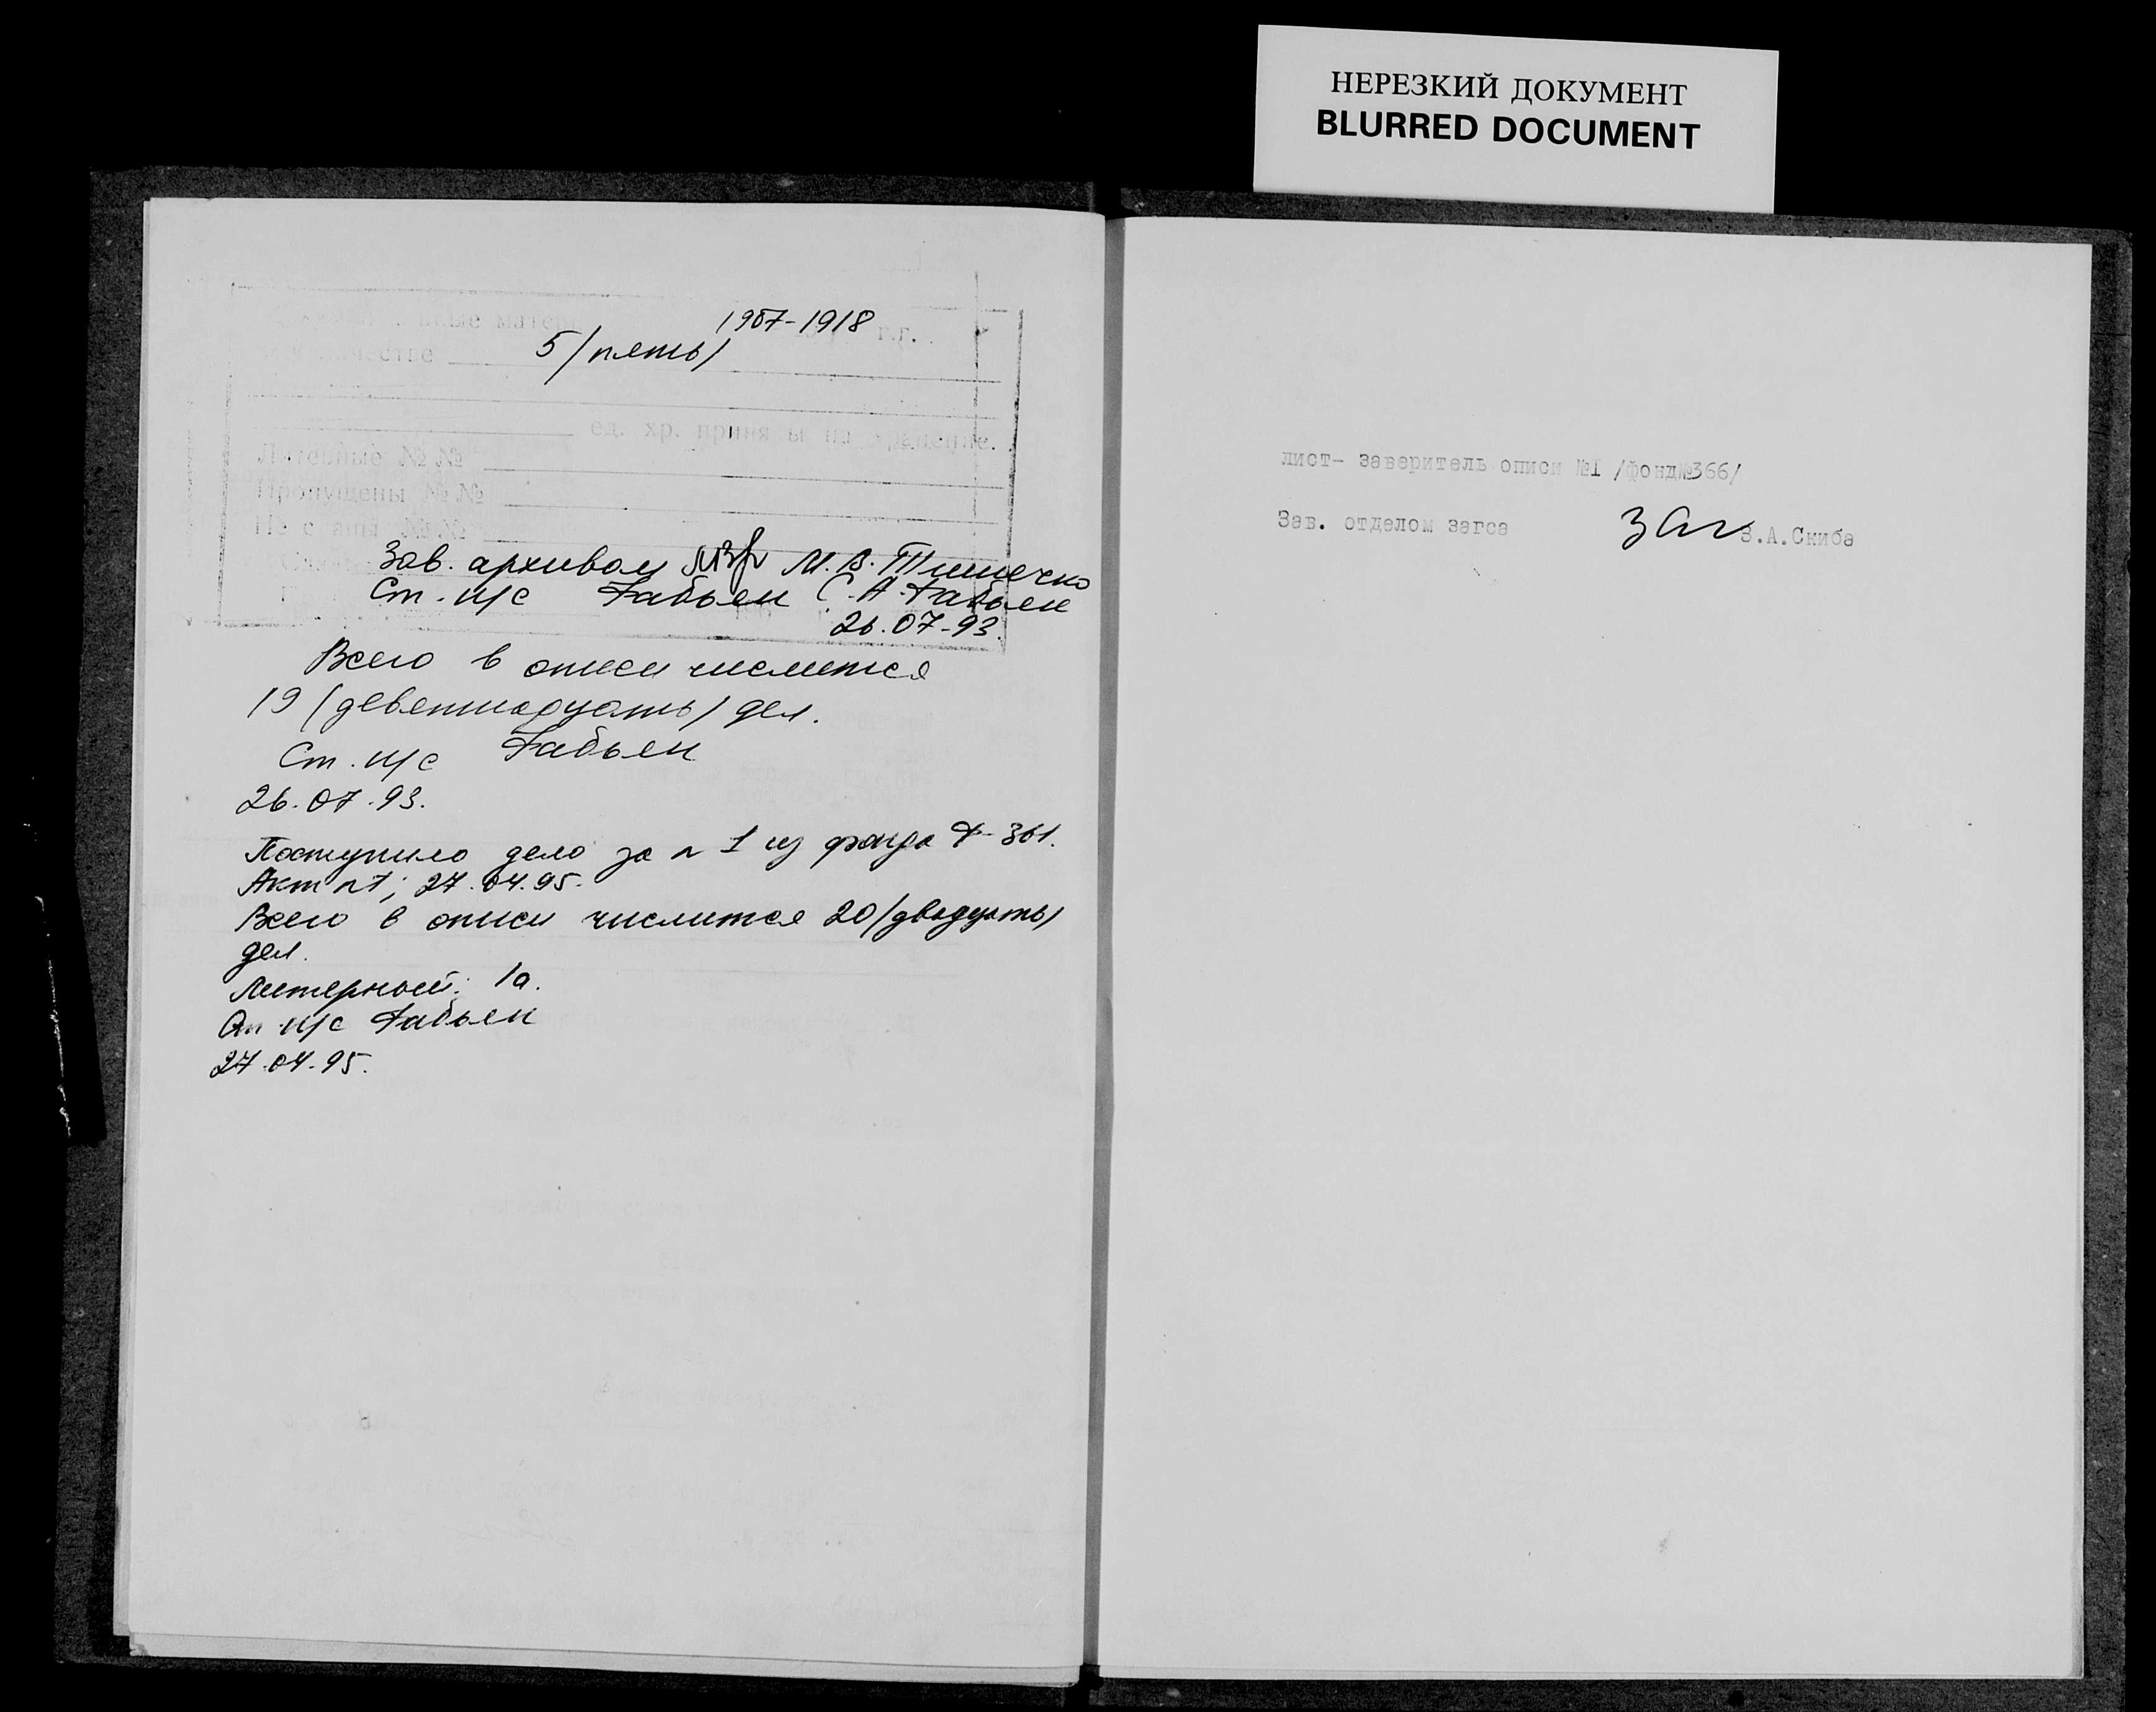 НЕРЕЗКИЙ ДОКУМЕНТ
BLURRED DOCUMENT
1907-1918 г.г.
5 /пять/
ед. хр. приняты на хранение.
Литерные №№
Пропущены №№
Зав. архивом М.В. Тимечко
Ст. н/с Фабьен С.А. Фабьен
26.07-93.
Всего в описи числится
19 /девятнадцать/ дел.
Ст. н/с Фабьен
26.07.93.
Поступило дело за № 1 из фонда Ф-361.
Акт №1; 27.04.95.
Всего в описи числится 20 /двадцать/
дел.
Литерной: 1а.
Ст н/с Фабьен
27.04.95.
лист- заверитель описи №I /фонд№366/
Зав. отделом загса З.А.Скиба